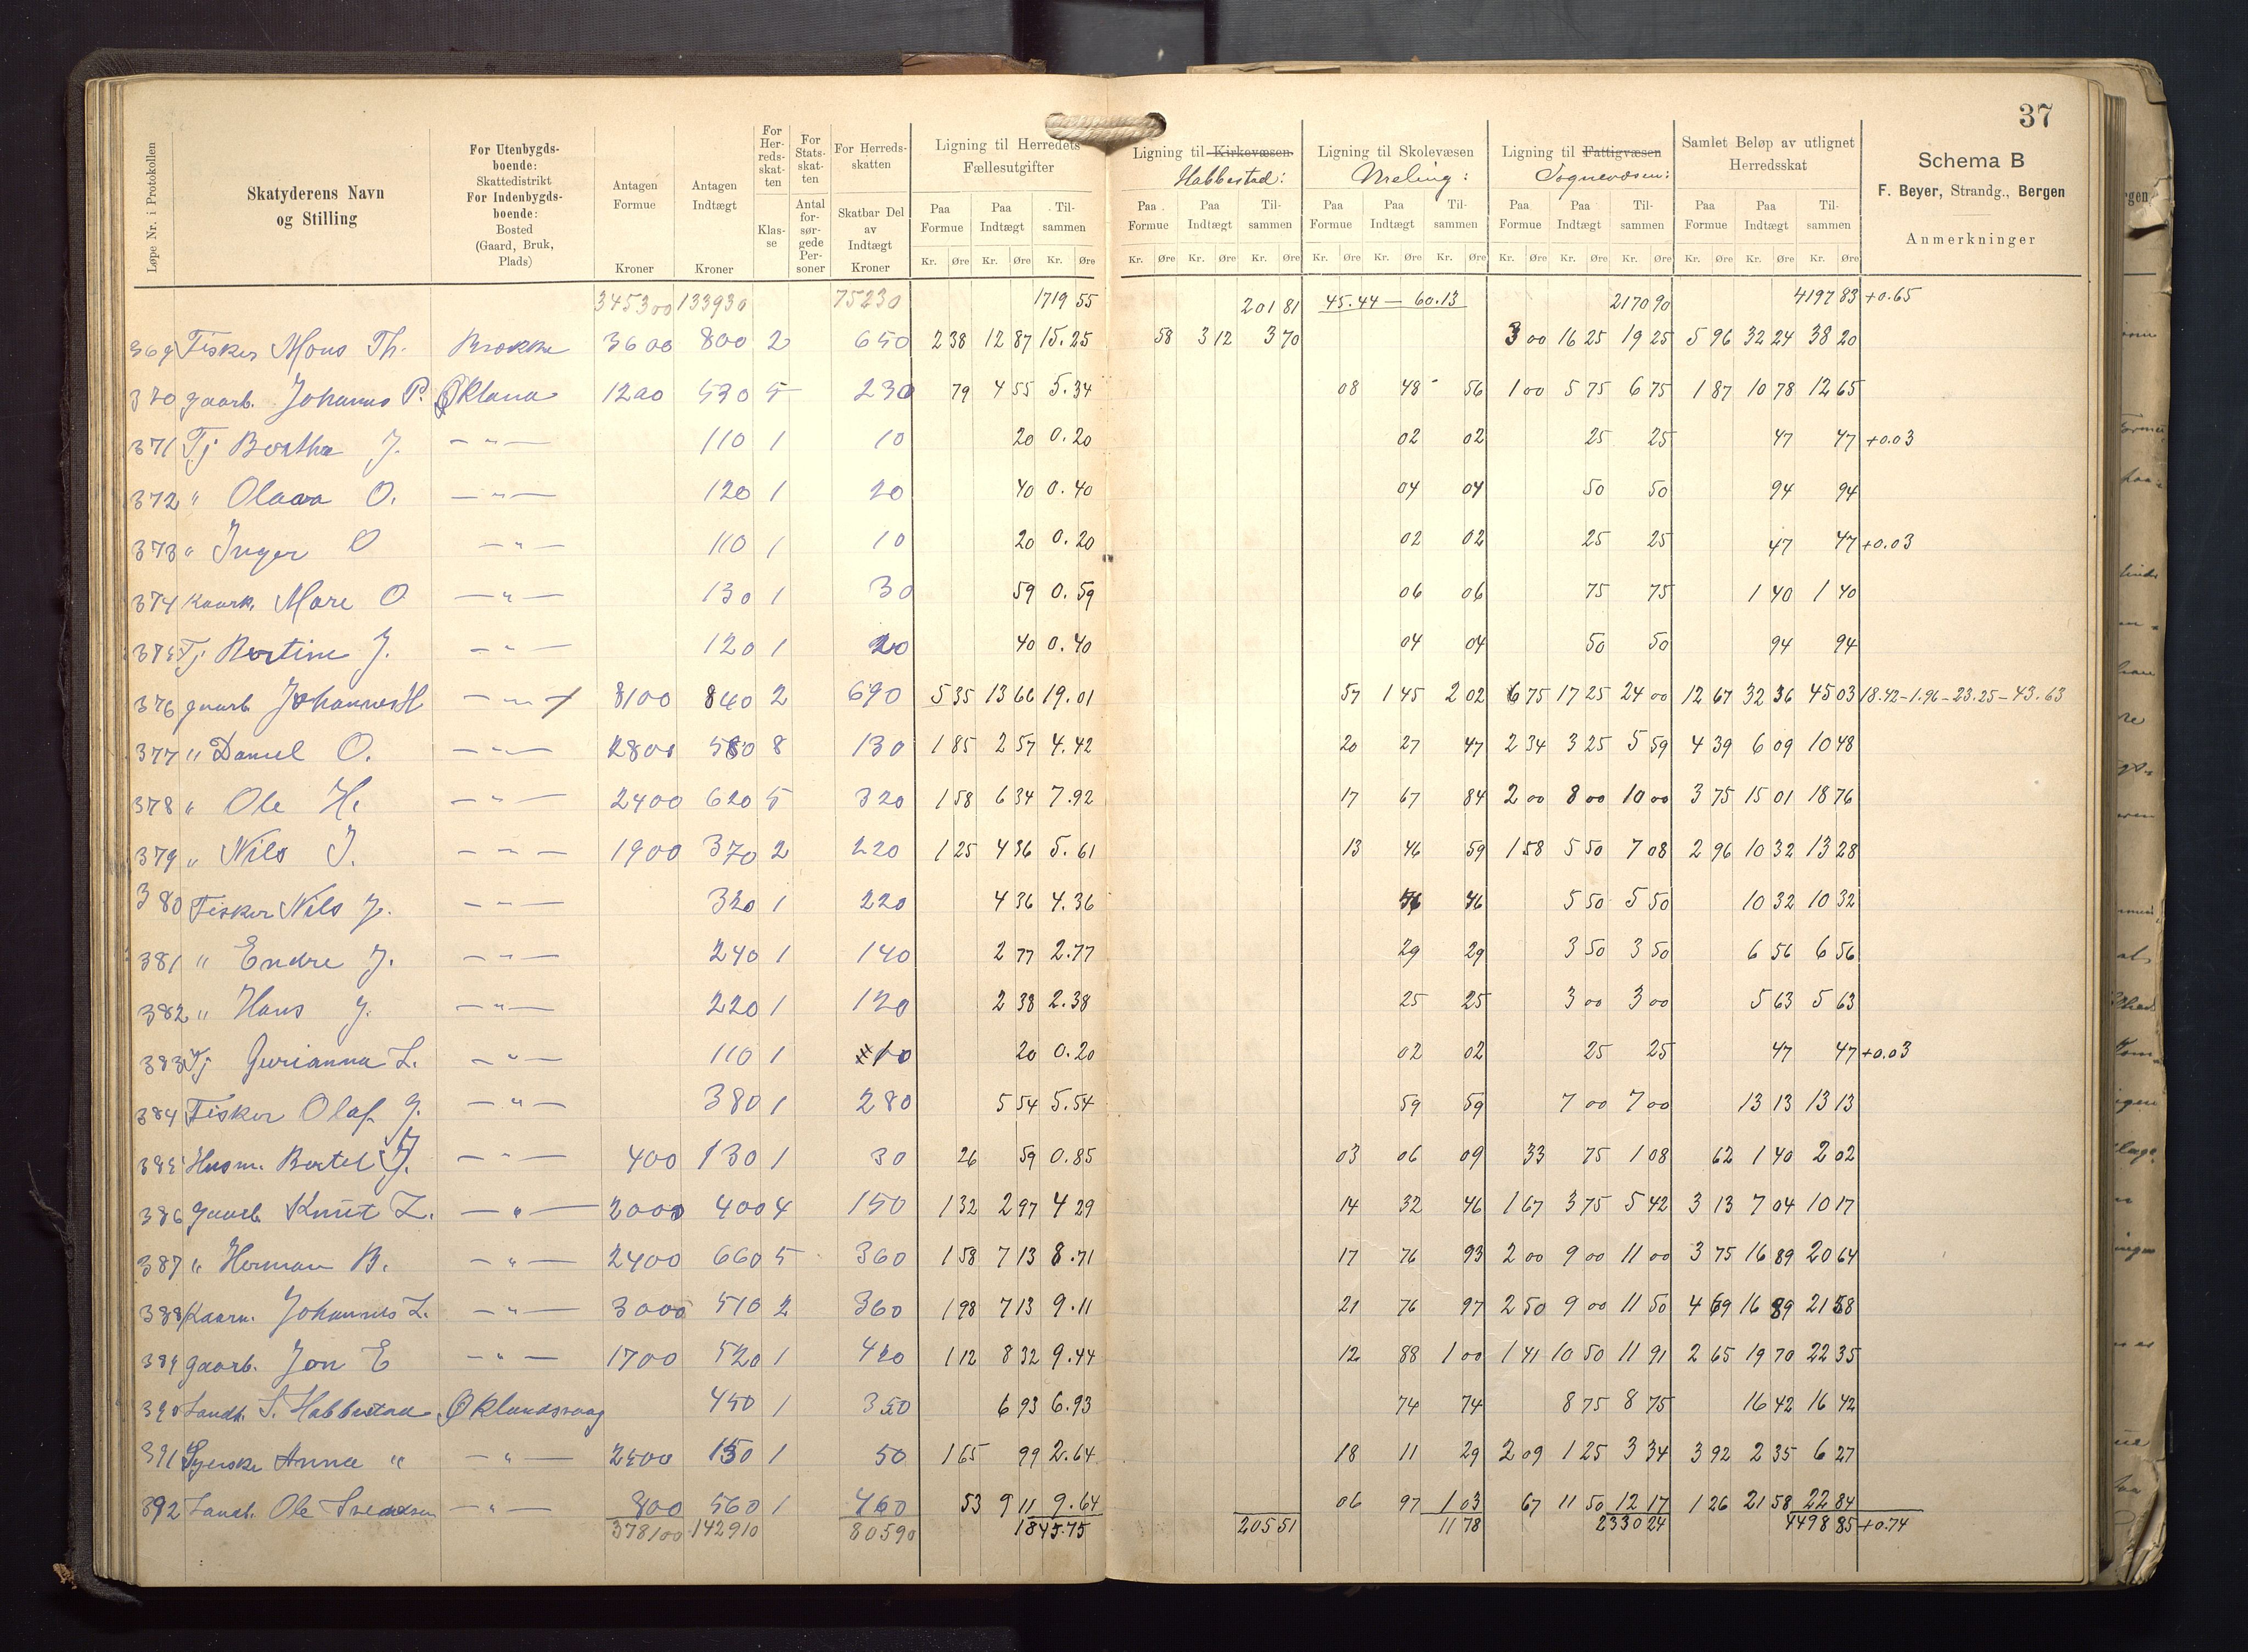 37
Løpe Nr. i Protokollen
Skatyderens Navn og Stilling
For Utenbygdsboende: Skattedistrikt For Indenbygdsboende: Bosted (Gaard, Bruk, Plads)
Antagen Formue Kroner
Antagen Indtægt Kroner
For Herredsskatten Klasse
For Statsskatten Antal forsørgede Personer
For Herredsskatten Skatbar Del av Indtægt Kroner
Ligning til Herredets Fællesutgifter
Paa Formue Paa Indtægt Tilsammen
Kr. Øre Kr. Øre Kr. Øre
Ligning til Kirkevæsen Habbestad:
Paa Formue Paa Indtægt Tilsammen
Kr. Øre Kr. Øre Kr. Øre
Ligning til Skolevæsen Meling:
Paa Formue Paa Indtægt Tilsammen
Kr. Øre Kr. Øre Kr. Øre
Ligning til Fattigvæsen Sognevæsen:
Paa Formue Paa Indtægt Tilsammen
Kr. Øre Kr. Øre Kr. Øre
Samlet Beløp av utlignet Herredsskat
Paa Formue Paa Indtægt Tilsammen
Kr. Øre Kr. Øre Kr. Øre
Schema B
F. Beyer, Strandg., Bergen
Anmerkninger
345300 133930 75230 1719 55 201 81 45.44 — 60.13 2170 90 4197 83 +0.65
369 Fisker Mons Th. Brokke 3600 800 2 650 2 38 12 87 15.25 58 3 12 3 70 3 00 16 25 19 25 5 96 32 24 38 20
370 gaarb. Johannes P. Økland 1200 530 5 230 79 4 55 5.34 08 48 56 1 00 5 75 6 75 1 87 10 78 12 65
371 Tj Bertha J. — " — 110 1 10 20 0.20 02 02 25 25 47 47 +0.03
372 " Olava O. — " — 120 1 20 40 0.40 04 04 50 50 94 94
373 " Inger O — " — 110 1 10 20 0.20 02 02 25 25 47 47 +0.03
374 Kaark. Mare O — " — 130 1 30 59 0.59 06 06 75 75 1 40 1 40
375 Tj Bertine J. — " — 120 1 20 40 0.40 04 04 50 50 94 94
376 gaarb Johannes H — " — 8100 840 2 690 5 35 13 66 19.01 57 1 45 2 02 6 75 17 25 24 00 12 67 32 36 45 03 18.42-1.96-23.25-43.63
377 " Daniel O. — " — 2800 580 8 130 1 85 2 57 4.42 20 27 47 2 34 3 25 5 59 4 39 6 09 10 48
378 " Ole H. — " — 2400 620 5 320 1 58 6 34 7.92 17 67 84 2 00 8 00 10 00 3 75 15 01 18 76
379 " Nils J. — " — 1900 370 2 220 1 25 4 36 5.61 13 46 59 1 58 5 50 7 08 2 96 10 32 13 28
380 Fisker Nils J. — " — 320 1 220 4 36 4.36 46 46 5 50 5 50 10 32 10 32
381 " Endre J. — " — 240 1 140 2 77 2.77 29 29 3 50 3 50 6 56 6 56
382 " Hans J. — " — 220 1 120 2 38 2.38 25 25 3 00 3 00 5 63 5 63
383 Tj Gurianna L. — " — 110 1 10 20 0.20 02 02 25 25 47 47 +0.03
384 Fisker Olaf J. — " — 380 1 280 5 54 5.54 59 59 7 00 7 00 13 13 13 13
385 Husm. Bertel J. — " — 400 130 1 30 26 59 0.85 03 06 09 33 75 1 08 62 1 40 2 02
386 gaarb. Knut L. — " — 2000 400 4 150 1 32 2 97 4 29 14 32 46 1 67 3 75 5 42 3 13 7 04 10 17
387 " Herman B. — " — 2400 660 5 360 1 58 7 13 8.71 17 76 93 2 00 9 00 11 00 3 75 16 89 20 64
388 Kaarm. Johannes L. — " — 3000 510 2 360 1 98 7 13 9.11 21 76 97 2 50 9 00 11 50 4 69 16 89 21 58
389 gaarb. Jon E — " — 1700 520 1 420 1 12 8 32 9.44 12 88 1 00 1 41 10 50 11 91 2 65 19 70 22 35
390 Landh. S. Habbestad Øklandsvaag 450 1 350 6 93 6.93 74 74 8 75 8 75 16 42 16 42
391 Syerske Anna " — " — 2500 150 1 50 1 65 99 2.64 18 11 29 2 09 1 25 3 34 3 92 2 35 6 27
392 Landh. Ole Svendsen — " — 800 560 1 460 53 9 11 9.64 06 97 1 03 67 11 50 12 17 1 26 21 58 22 84
378100 142910 80590 1845.75 205 51 11 78 2330 24 4498 85 +0.74